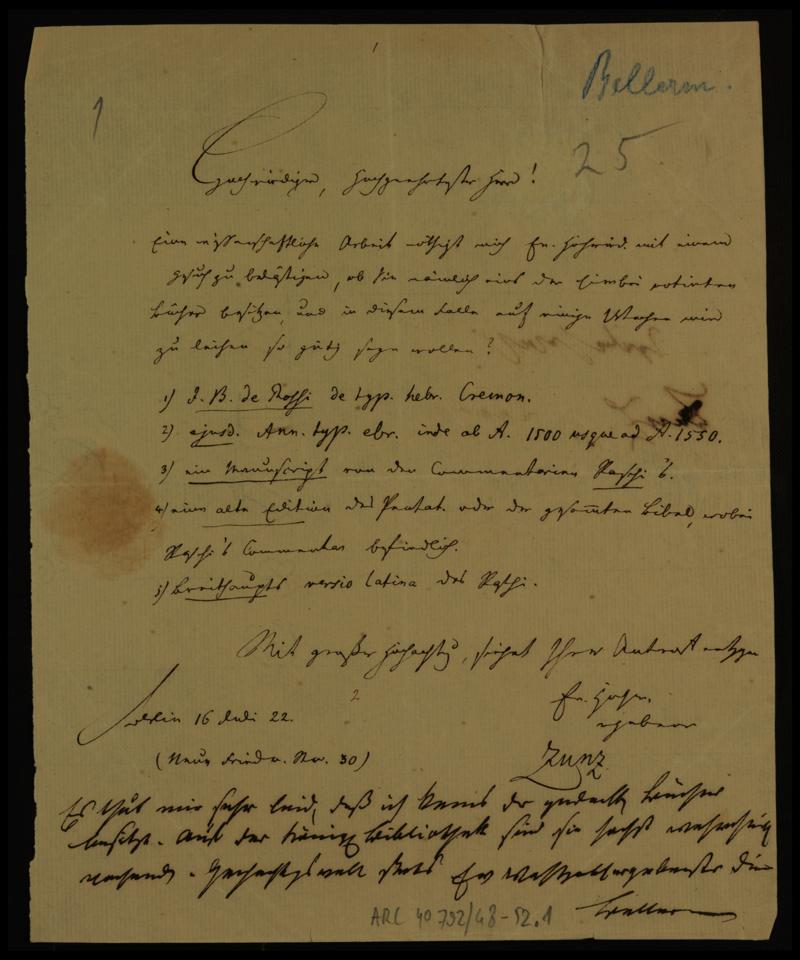 1
1
Bellerm.
25
Hochwürdiger, Hochgeehrtester Herr!
Eine wissenschaftliche Arbeit nöthigt mich Ew. Hochwürd. mit einem
Gesuch zu belästigen, ob Sie nämlich eins der hierbei notirten
Bücher besitzen, und in diesem Falle auf einige Wochen mir
zu leihen so gütig seyn wollen?
1) J. B. de Rossi de typ. hebr. Cremon.
2) ejusd. Ann. typ. ebr. inde ab A. 1500 usque ad A. 1550.
3) ein Manuscript von den Commentarien Raschi's.
4) eine alte Edition des Pentat. oder der gesammten Bibel, wobei
Raschi's Commentar befindlich.
5) Breithaupts versio latina des Raschi.
Mit großer Hochachtung, sieht Ihrer Antwort entgegen
Berlin 16 Juli 22.
2
Ew. Hochw.
ergebener
(Neue Friedr. Str. 30)
Zunz
Es thut mir sehr leid, daß ich keins der gedachten Bücher
besitze. Auf der Königl. Bibliothek sind sie höchst wahrscheinlich
vorhanden. Hochachtungsvoll stets Ew Wohlgeb ergebenster
Bellermann
ARC 40 792/48-52.1